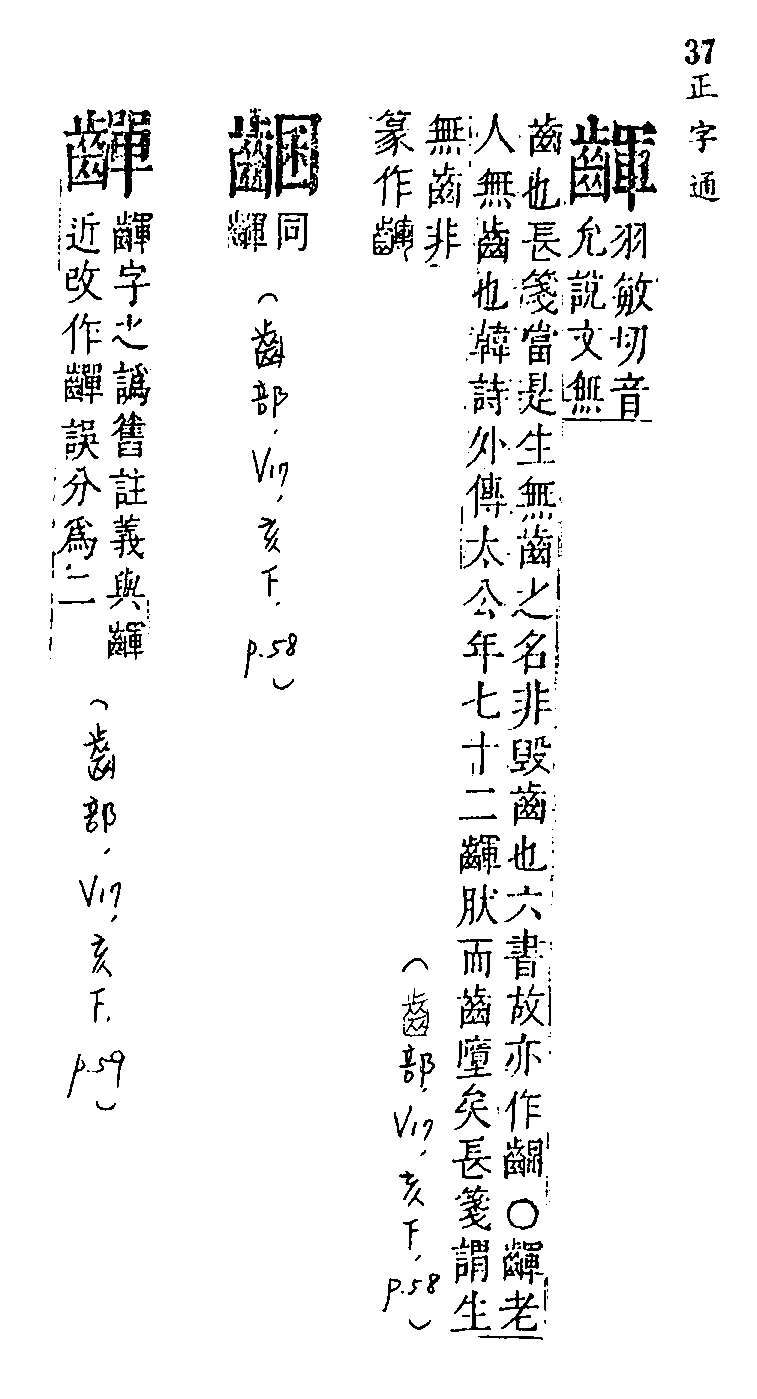 37
正字通
齳
羽敏切音
允說文無
齒也長箋當是生無齒之名非毀齒也六書故亦作齫〇齳老
人無齒也韓詩外傳太公年七十二齳肰而齒墮矣長箋謂生
無齒非
篆作齳
(齒部, V17, 亥下, p.58)
齫
同
齳
(齒部, V17, 亥下, p.58)
齳字之譌舊註義與齳
近改作 誤分爲二
(齒部, V17, 亥下, p.59)